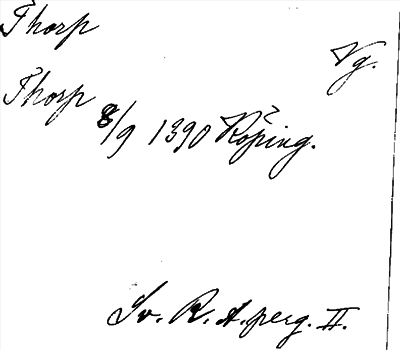 Thorp
Vg.
Thorp
8/9 1390 Köping.
Sv. R. A. perg. II.